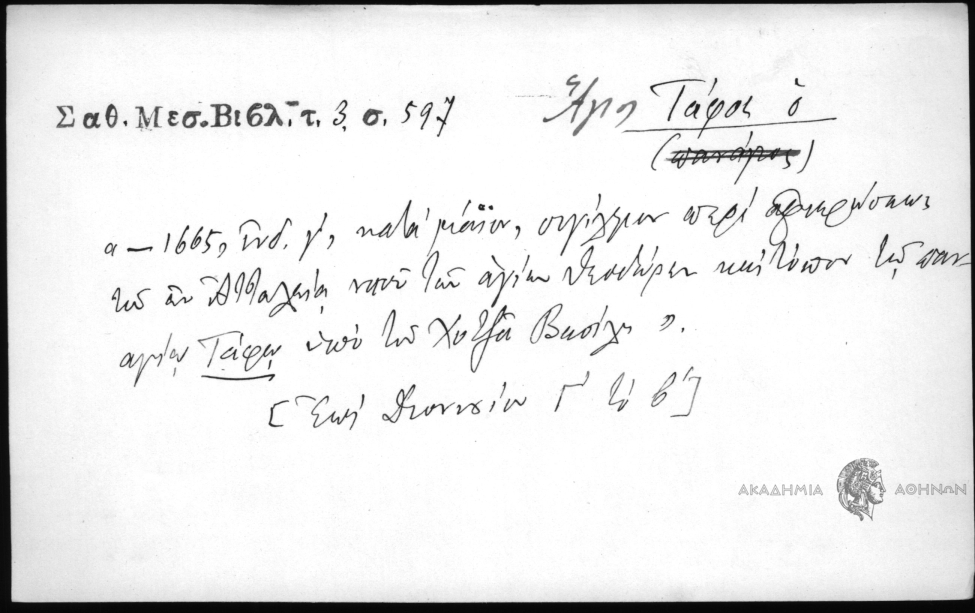 Σαθ. Μεσ. Βιβλ. τ. 3, σ. 597
Ἅγιος Τάφος ὁ
(πανάγιος)
«— 1665, ἰνδ. γ', κατὰ μάϊον, σιγίλλιον περὶ ἀφιερώσεως
τοῦ ἐν Ἀτταλείᾳ ναοῦ τῶν ἁγίων Θεοδώρων καὶ τόπου τῷ παν-
αγίῳ Τάφῳ ὑπὸ τοῦ Χοτζᾶ Βασίλη».
[Ἐπὶ Διονυσίου Γ' τὸ β']
ΑΚΑΔΗΜΙΑ ΑΘΗΝΩΝ